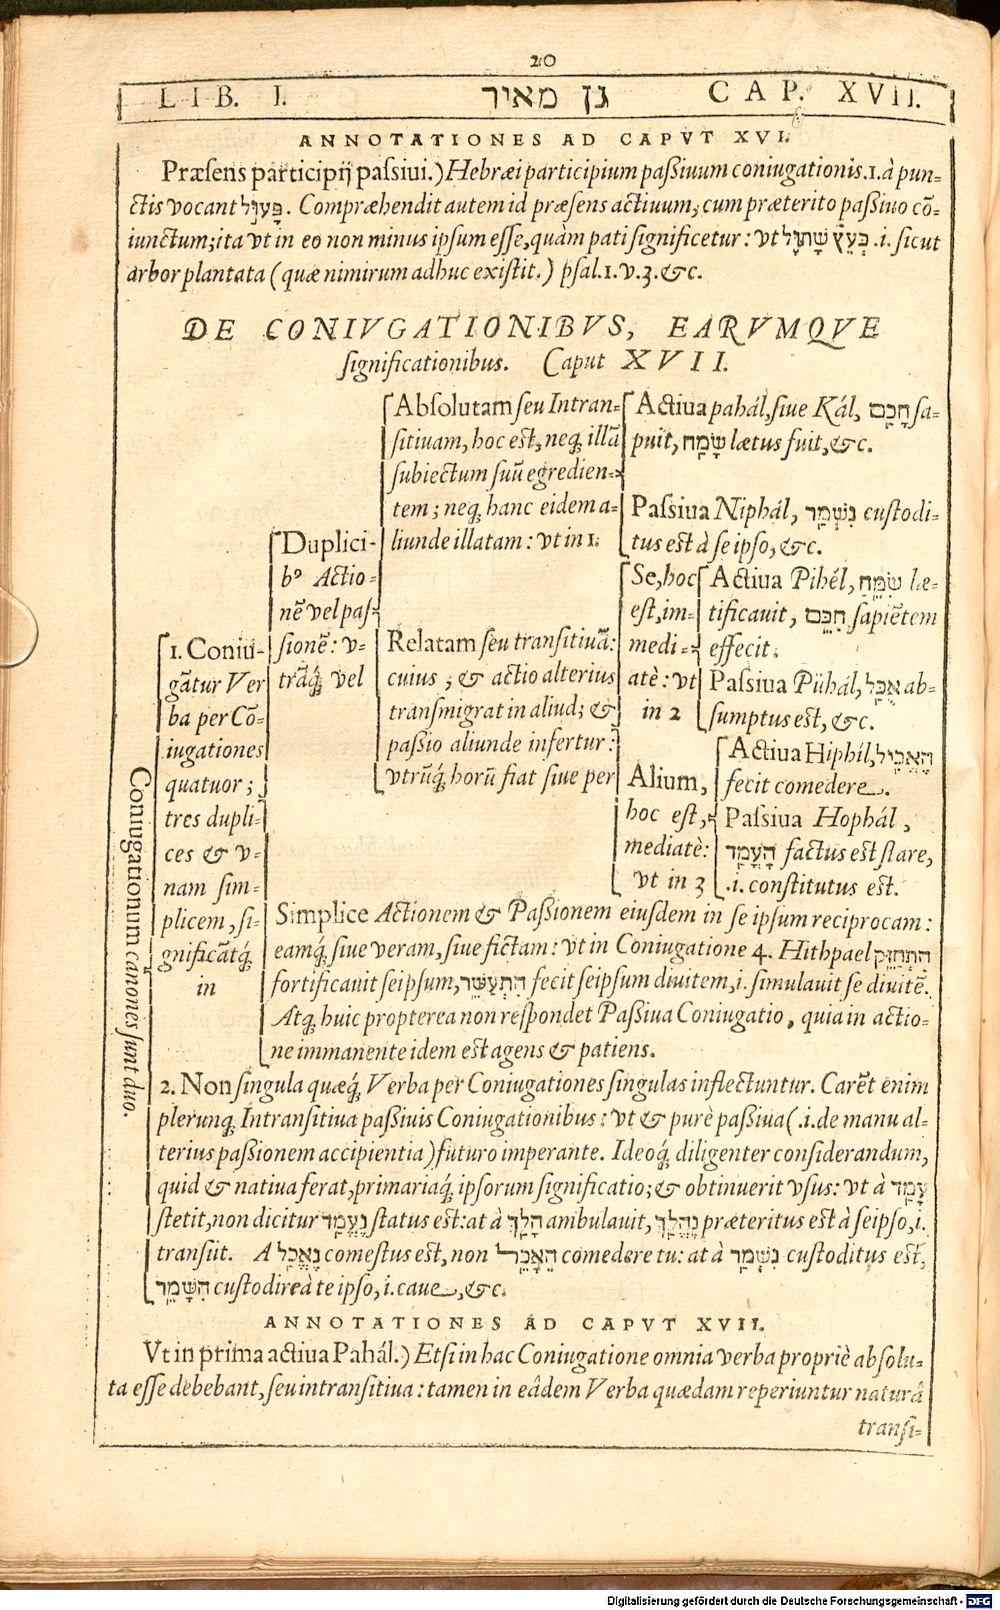 20
LIB. I. גן מאיר CAP. XVII.
ANNOTATIONES AD CAPVT XVI.
Præsens participij passiui.) Hebræi participium passiuum coniugationis.1.à pun-
ctis vocant פָּעוּל. Compræhendit autem id præsens actiuum; cum præterito passiuo cō-
iunctum; ita vt in eo non minus ipsum esse, quàm pati significetur: vt כְּעֵץ שָׁתוּל .i. sicut
arbor plantata (quæ nimirum adhuc existit.) psal.1.v.3.&c.
DE CONIVGATIONIBVS, EARVMQVE
significationibus. Caput XVII.
Coniugationum canones sunt duo.
1. Coniu-
gātur Ver
ba per Cō-
iugationes
quatuor;
tres dupli-
ces & v-
nam sim-
plicem, si-
gnificātq́;
in
Duplici-
bꝰ Actio-
nē vel pas-
sionē: v-
trāq́; vel
Absolutam seu Intran-
sitiuam, hoc est, neq; illā
subiectum suū egredien-
tem; neq; hanc eidem a-
liunde illatam: vt in 1.
Actiua pahál, siue Kál, חָכַם sa-
puit, שָׂמַח lætus fuit, &c.
Passiua Niphál, נִשְׁמַר custodi-
tus est à se ipso, &c.
Relatam seu transitiuā:
cuius; & actio alterius
transmigrat in aliud; &
passio aliunde infertur:
vtrūq; horū fiat siue per
Se, hoc
est, im-
medi-
atè: vt
in 2
Actiua Pihél, שִׂמֵּחַ læ-
tificauit, חִכֵּם sapiētem
effecit.
Passiua Pühál, אֻכַּל ab-
sumptus est, &c.
Alium,
hoc est,
mediatè:
vt in 3
Actiua Hiphíl, הֶאֱכִיל
fecit comedere.
Passiua Hophál,
הָעֳמַד factus est stare,
.i. constitutus est.
Simplice Actionem & Passionem eiusdem in se ipsum reciprocam:
eamq́; siue veram, siue fictam: vt in Coniugatione 4. Hithpael הִתְחַזֵּק
fortificauit seipsum, הִתְעַשֵּׁר fecit seipsum diuitem, i. simulauit se diuitē.
Atq; huic propterea non respondet Passiua Coniugatio, quia in actio-
ne immanente idem est agens & patiens.
2. Non singula quæq́; Verba per Coniugationes singulas inflectuntur. Carēt enim
plerunq; Intransitiua passiuis Coniugationibus: vt & purè passiua (.i. de manu al-
terius passionem accipientia) futuro imperante. Ideoq́; diligenter considerandum,
quid & natiua ferat, primariaq́; ipsorum significatio; & obtinuerit vsus: vt à עָמַד
stetit, non dicitur נֶעֱמַד status est: at à הָלַךְ ambulauit, נֶהֱלַךְ præteritus est à seipso, i.
transiit. A נֶאֱכַל comestus est, non הֵאָכֵל comedere tu: at à נִשְׁמַר custoditus est,
הִשָּׁמֵר custodire à te ipso, i. caue, &c.
ANNOTATIONES AD CAPVT XVII.
Vt in prima actiua Pahál.) Etsi in hac Coniugatione omnia verba propriè absolu-
ta esse debebant, seu intransitiua: tamen in eâdem Verba quædam reperiuntur naturâ
transi-
Digitalisierung gefördert durch die Deutsche Forschungsgemeinschaft - DFG